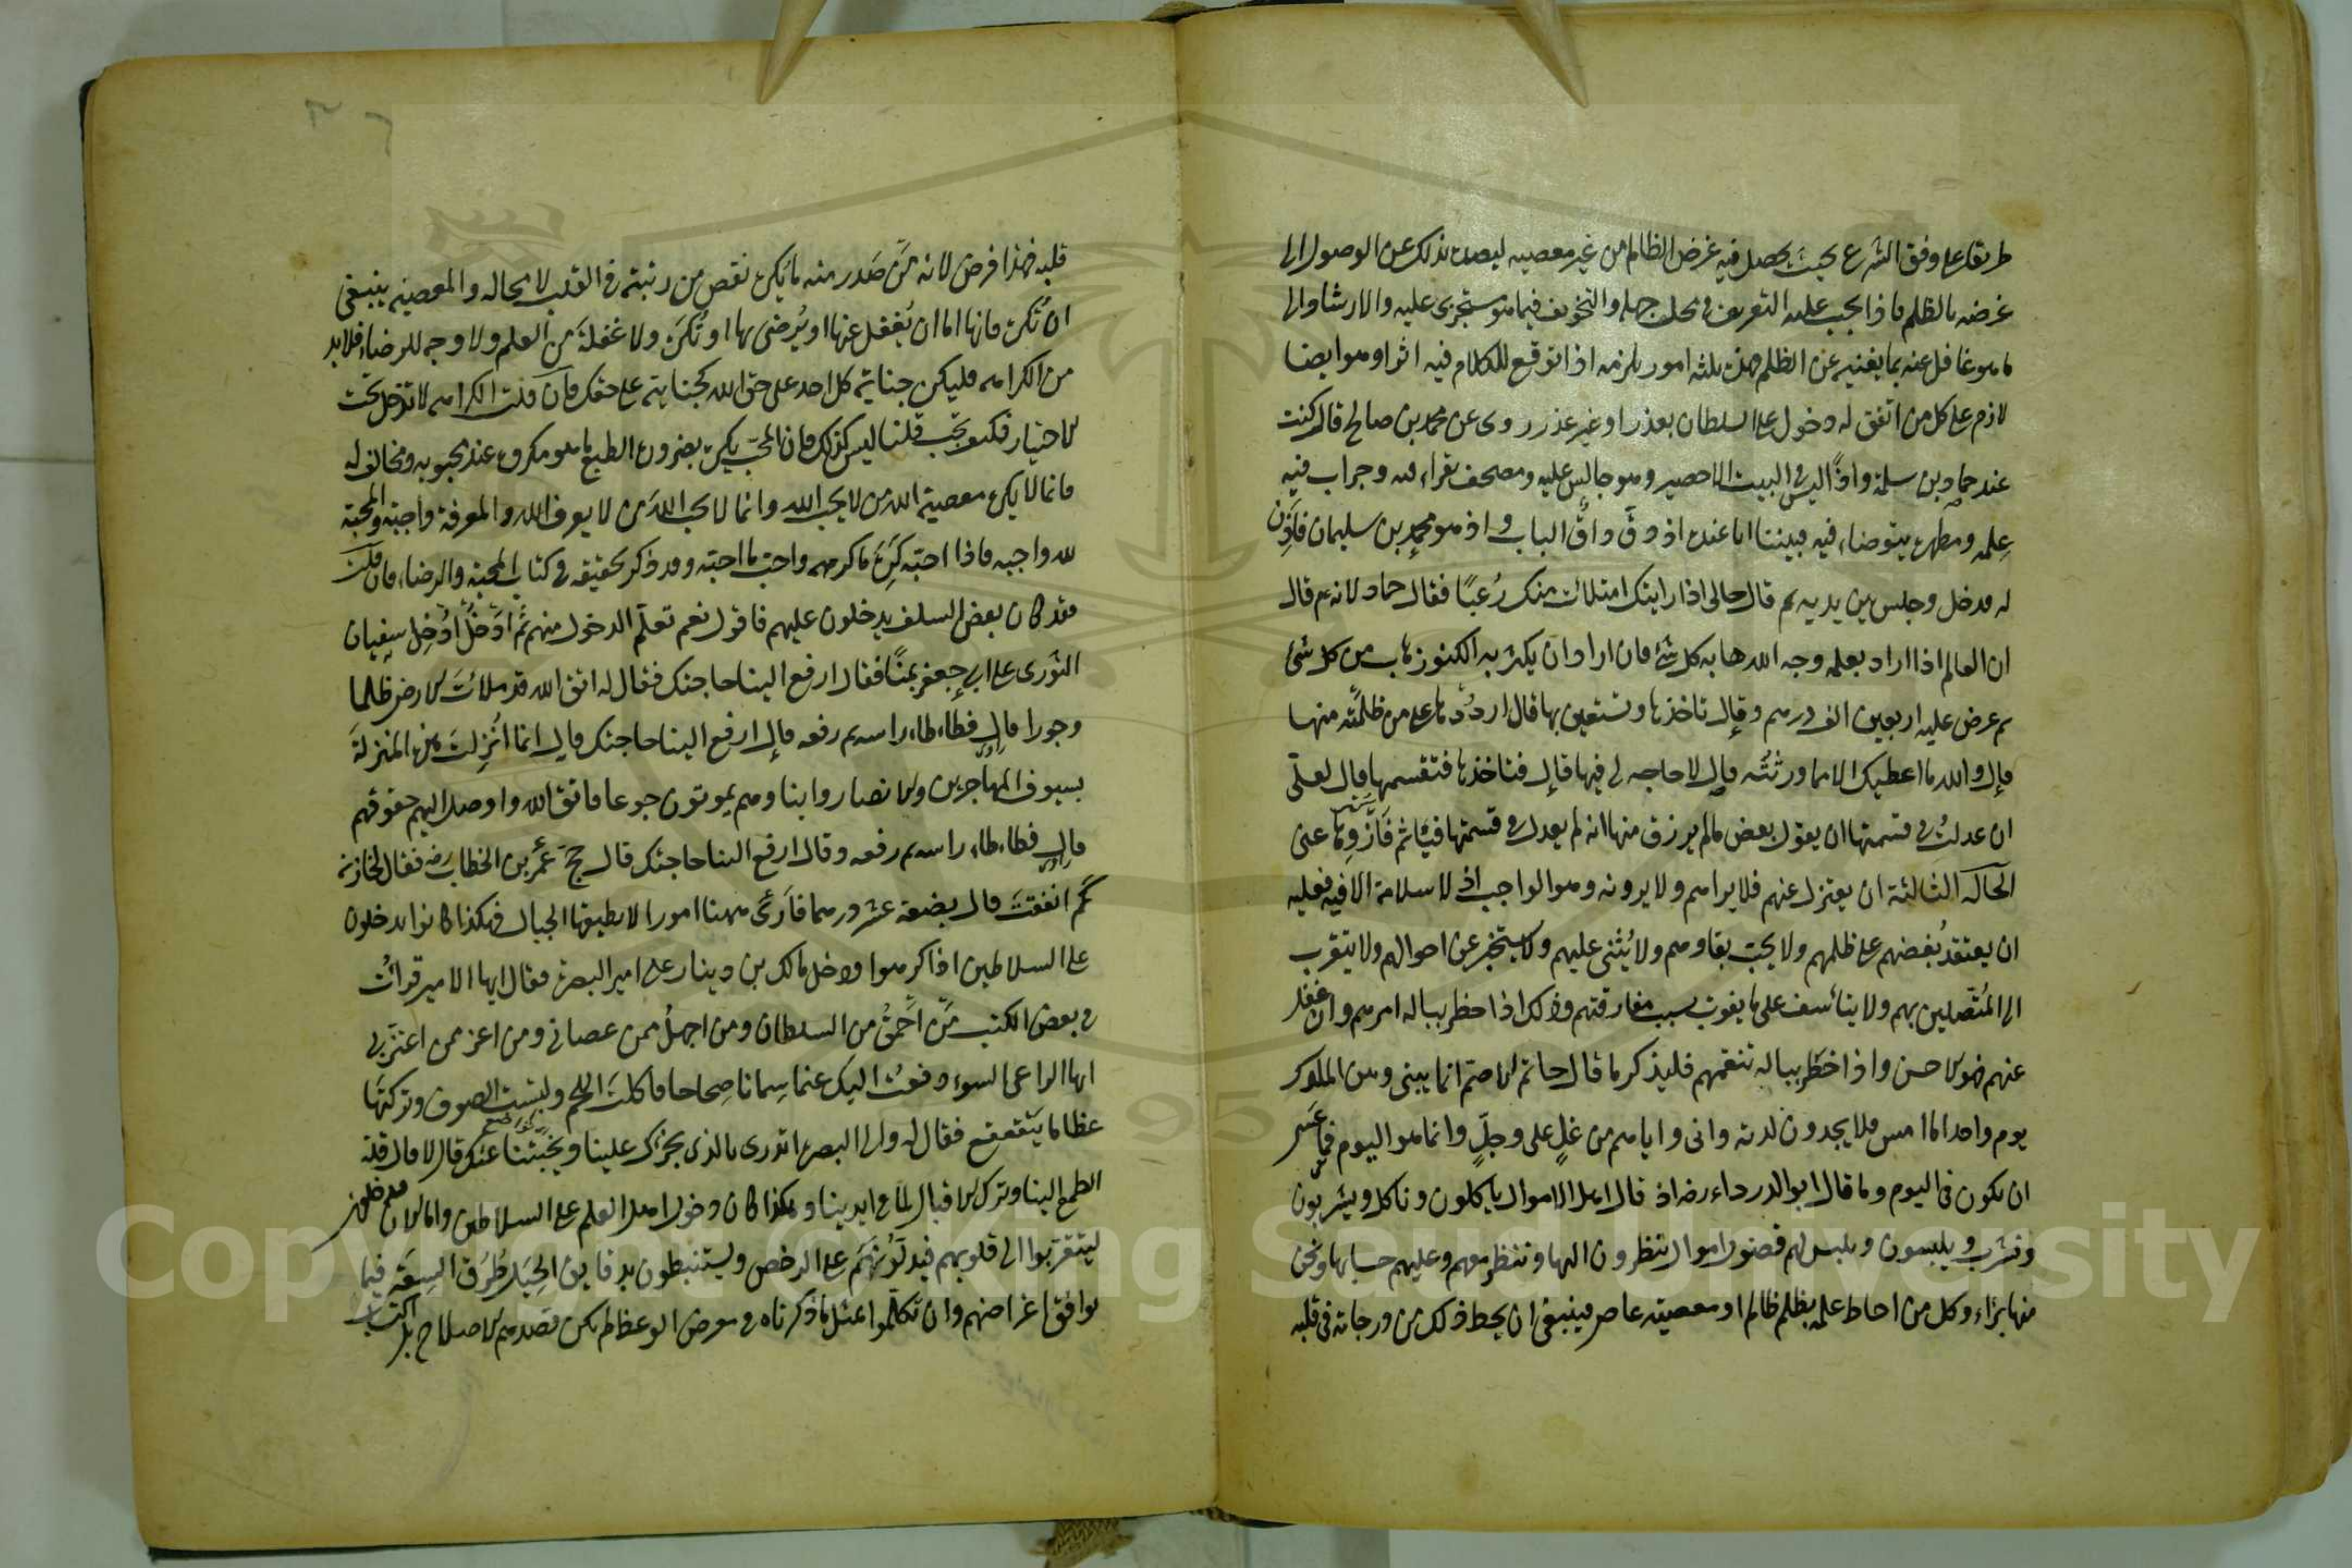 طريقا على وفق الشرع بحيث يحصل فيه غرض الظالم من غير معصيه ليصده بذلك عن الوصول الى
غرضه بالظلم فاذا يجب عليه التعريف فى محل جهله والتخويف فيما هو مستجرى عليه والارشاد الى
ما هو غافل عنه بما يغنيه عن الظلم فهذه ثلثه امور يلزمه اذا توقع للكلام فيه اثرا وهو ايضا
لازم على كل من اتفق له دخول على السلطان بعذر او غير عذر روى عن محمد بن صالح قال كنت
عند حماد بن سلمة واذا ليس فى البيت الا حصير وهو جالس عليه ومصحف يقراء فيه وجراب فيه
علمه ومطهره يتوضاء فيه فبينا انا عنده اذ دق داق الباب واذ هو محمد بن سليمان فاذن
له فدخل وجلس بين يديه ثم قال مالى اذا رايتك امتلات منك رعبا فقال حماد لانه عم قال
ان العالم اذا اراد بعلمه وجه الله هابه كل شئ فان اراد ان يكثر به الكنوز هاب من كل شئ
ثم عرض عليه اربعين الف درهم وقال تاخذها وتستعين بها قال ارددها على من ظلمته منها
قال والله ما اعطيك الا مما ورثته قال لا حاجه لى فيها قال فتاخذها فتقسمها قال لعلى
ان عدلت فى قسمتها ان يقول بعض ما لم يرزق منها انه لم يعدل فى قسمتها فيأثم فازوها عنى
الحاله الثالثة ان يعتزل عنهم فلا يراهم ولا يرونه وهو الواجب اذ لا سلامة الا فيه فعليه
ان يعتقد بغضهم على ظلمهم ولا يحب بقاوهم ولا يثنى عليهم ولا يستخبر عن احوالهم ولا يتقرب
الى المتصلين بهم ولا يتأسف على ما يفوت بسبب مفارقتهم وذلك اذا خطر بباله امرهم وان غفل
عنهم فهو الاحسن واذا خطر بباله تنعمهم فليذكر ما قال حاتم الاصم انما بينى وبين الملوك
يوم واحد اما امس فلا يجدون لذته وانى واياهم من غد على وجل وانما هو اليوم فما عسى
ان يكون فى اليوم وما قال ابو الدرداء رضه اذ قال اهل الاموال ياكلون وناكل ويشربون
ونشرب ويلبسون ونلبس لهم فضول اموال ينظرون اليها وننظر معهم وعليهم حسابها ونحن
منها براء وكل من احاط علمه بظلم ظالم او معصيته عاص فينبغى ان يحط ذلك من درجاته فى قلبه
قلبه فهذا فرض لانه من صدر منه ما يكره نقص من رتبته فى القلب لا محاله والمعصيه ينبغى
ان تكره فانها اما ان يغفل عنها او يرضى بها او تكره ولا غفلة من العلم ولا وجه للرضاء فلا بد
من الكراهه فليكن جناية كل احد على حق الله كجنايته على حقك فان قلت الكراهه لا تدخل تحت
الاختيار فكيف تجب قلنا ليس كذلك فان المحب يكره بضرورة الطبع ما هو مكروه عند محبوبه ومخالف له
فانما لا يكره معصية الله من لا يحب الله وانما لا يحب الله من لا يعرف الله والمعرفة واجبة والمحبة
لله واجبه فاذا احبه كره ما كرهه واحب ما احبه وقد ذكر تحقيقه فى كتاب المحبة والرضاء فان قلت
فقد كان بعض السلف يدخلون عليهم فاقول نعم تعلم الدخول منهم ثم ادخل ادخل سفيان
الثورى على ابى جعفر بمنا فقال ارفع الينا حاجتك فقال له اتق الله قد ملأت الارض ظلما
وجورا قال فطاءطاء راسه ثم رفعه قال ارفع الينا حاجتك قال انما انزلت هذه المنزلة
بسيوف المهاجرين والانصار وابناوهم يموتون جوعا فاتق الله واوصل اليهم حقوقهم
قال فطاءطاء راسه ثم رفعه وقال ارفع الينا حاجتك قال حج عمر بن الخطاب رضه فقال لخازنه
كم انفقت قال بضعة عشر درهما فأرى ههنا امورا لا يطيقها الجبال فهكذا كانوا يدخلون
على السلاطين اذا كرهوا ودخل مالك بن دينار على امير البصره فقال ايها الامير قرأت
فى بعض الكتب من احمق من السلطان ومن اجهل ممن عصانى ومن اعز ممن اعتز بى
ايها الراعى السوء دفعت اليك غنما سمانا صحاحا فاكلت اللحم ولبست الصوف وتركتها
عظاما يتقعقع فقال له والى البصره اتدرى ما الذى يجرك علينا ويخبثنا عنك قال لا قال قلة
الطمع الينا وترك الاقبال لما فى ايدينا وهكذا كان دخول اهل العلم على السلاطين واما الان
ليتقربوا الى قلوبهم فيدلونهم على الرخص ويستنبطون بدقايق الحيل طرق السعة فيما
يوافق اغراضهم وان تكلموا بمثل ما ذكرناه فى معرض الوعظ لم يكن قصدهم الاصلاح بل اكتساب